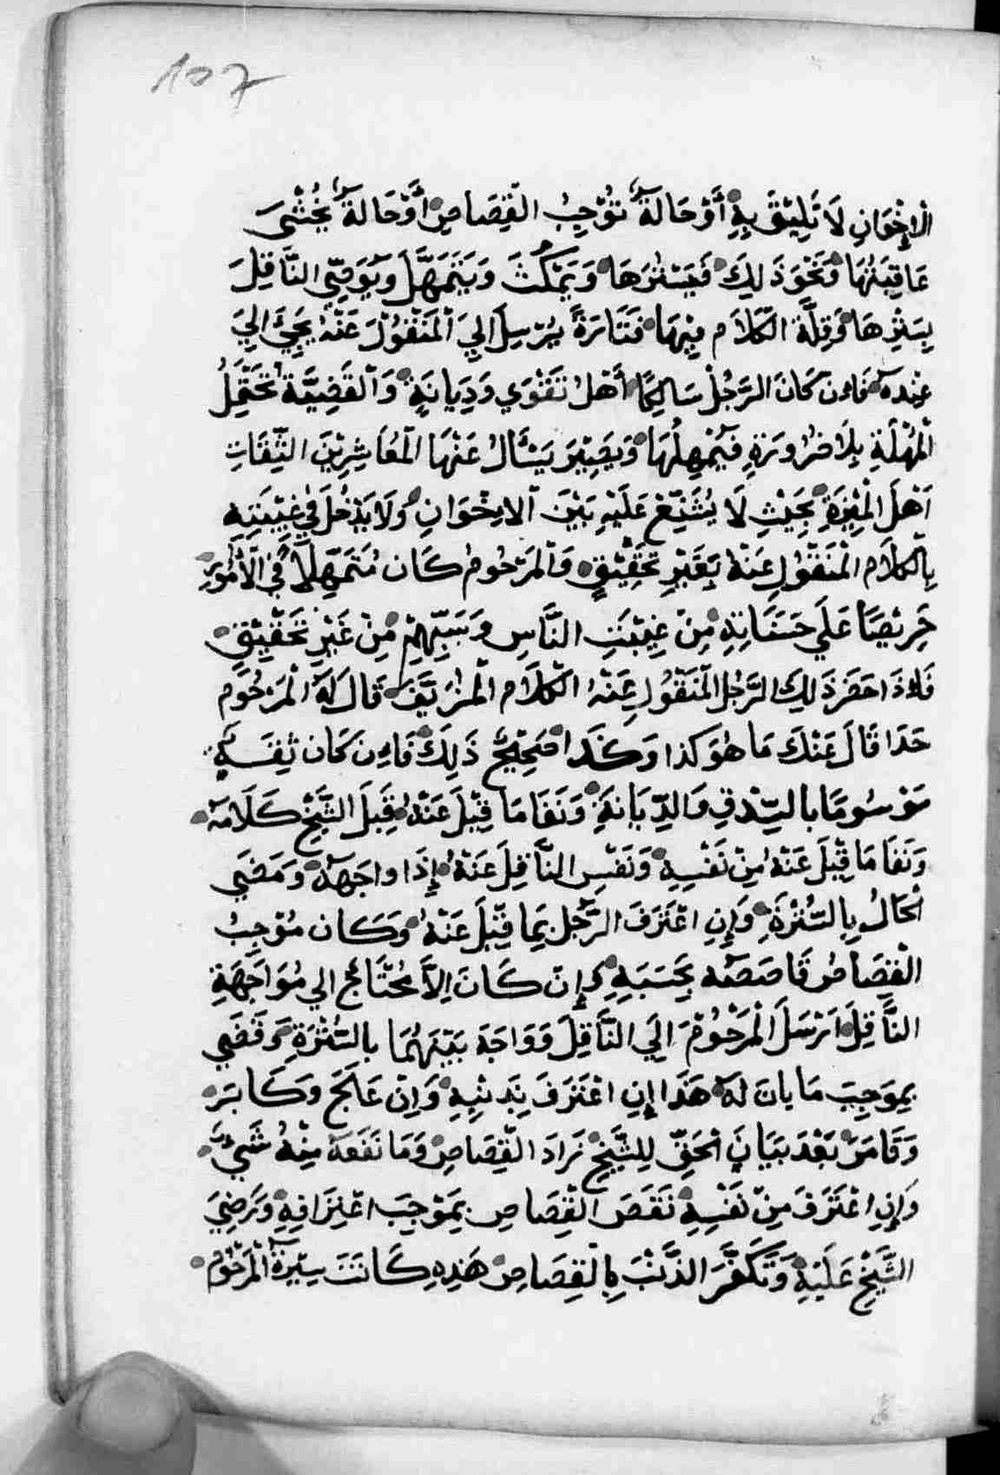 107
الاِخْوَانِ لَا تَلِيْقُ بِهِ أَوْ حَالَةً تُوْجِبُ القِصَاصَ أَوْ حَالَةً يُخْشَى
عَاقِبَتُهَا وَنَحْوَ ذَلِكَ فَيَسْتُرُهَا وَيَمْكُثَ وَيَتَمَهَّلَ وَيُوَصِّي النَّاقِلَ
بِسَتْرِهَا وَقِلَّةِ الكَلَامِ فِيهَا فَتَارَةً يُرْسِلُ اِلَى الْمَنْقُوْلَ عَنْهُ يَجِيْءُ اِلَيَ
عِنْدَهُ فَاِنْ كَانَ الرَّجُلُ سَالِكًا أَهْلَ تَقْوَي وَدِيَانَةٍ وَالْقَضِيَّةُ تَحْتَمِلُ
الْمُهْلَةِ بِلَا ضَرُورَةٍ فَيُمْهِلُهَا وَيَصِيْرَ يَسْأَلُ عَنْهَا الْمُعَاشِرِيْنَ الثِّقَاتِ
اَهْلَ الْخِبْرَةِ بِحَيْثِ لَا يُشَنِّعْ عَلَيْهِ بَيْنَ الاِخْوَانِ وَلَا يَدْخُلَ فِي غِيْبَتِهِ
بِالْكَلَامِ الْمَنْقُوْلِ عَنْهُ بِغَيْرِ تَحْقِيْقٍ وَالْمَرْحُومُ كَانَ مُتَمَهِّلًا فِي الْأُمُوْرِ
حَرِيْصًا عَلَي حَسَنَاتِهِ مِنْ غِيْبَتِ النَّاسِ وَسَبِّهِمْ مِنْ غَيْرِ تَحْقِيْقٍ
فَاِذَا حَضَرَ ذَلِكَ الرَّجُلُ الْمَنْقُوْلِ عَنْهُ الْكَلَامِ الْمُزَيَّفِ قَالَ لَهُ الْمَرْحُوْم
حَدَا قَالَ عَنْكَ مَا هُوَ كذا وَكَذَا صَحِيْحٌ ذَلِكَ فَاِنْ كَانَ ثِقَةٍ
مَوْسُومًا بالصِّدْقِ وَالدِّيَانَةِ وَنَفَا مَا قِيْلَ عَنْهُ قَبِلَ الشَّيْخْ كَلَامَهُ
وَنَفَا مَا قِيْلَ عَنْهُ مِنْ نَفْسِهِ وَنَفْسِ النَّاقِلَ عَنْهُ إِذَا واجَهَهُ وَمَضَي
الحَالُ بِالسُّتْرَةِ وَإِنِ اعْتَرَفَ الرَّجُل بِمَا قِيْلَ عَنْهُ وَكَانَ مُوْجِبُ
الْقِصَاصُ قَاصَصَهُ بِحَسَبِهِ وَإِنْ كَانَ اِلَّا مُحْتَاجٌ الي مُوَاجَهَةِ
النَّاقِلِ اَرْسَلَ الْمَرْحُوْمُ اِلَي النَّاقِلَ وَوَاجَهَ بَيْنَهُمَا بالسُّتْرَةِ وَقَضَي
بِمَوْجِبِ مَا بانَ لَهُ هَذَا إِنِ اعْتَرَفَ بِذَنْبِهِ وَاِنْ عَالَجَ وَكَابَرَ
وَقَامَرَ بَعْدَ بَيَانِ الحَقِّ لِلشَّيْخِ زَادَ الْقِصَاصَ وَمَا نَفَعَهُ مِنْهُ شَيْءٌ
وَاِنِ اعْتَرَفَ مِنْ نَفْسِهِ نَقَصَ القِصَاصِ بِمَوْجِبِ اعْتِرَافِهِ وَرَضِيَ
الشَّيْخُ عَلَيْهِ وَتَكَفَّرَ الذَّنْبَ بِالْقِصَاصِ هَذِهِ كَانَتَ سِيْرَةُ الْمَرْحُوْم